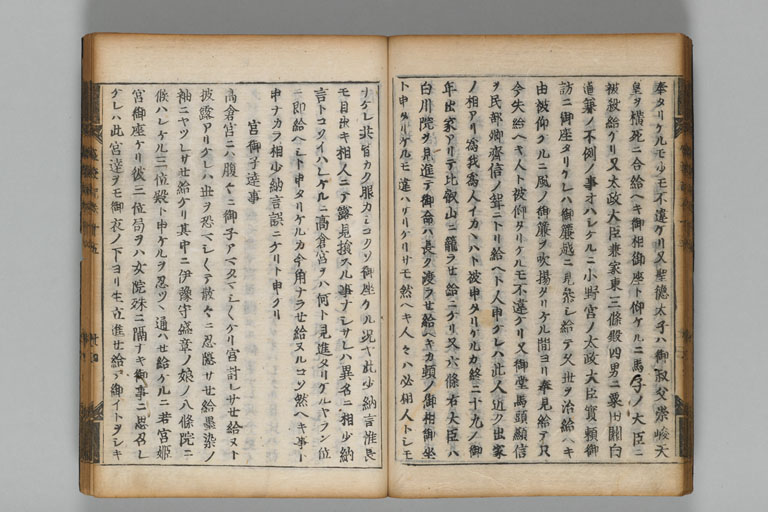 奉タリケルモ少モ不違ケリ又聖徳太子ハ御叔父崇峻天
皇ヲ横死ニ合給ヘキ御相御座ト仰ケルニ馬子ノ大臣ニ
被殺給ケリ又太政大臣兼家東三條殿四男ニ粟田關白
道兼ノ不例ノ事オハシケルニ小野宮ノ太政大臣實頼御
訪ニ御座タリケレハ御簾越ニ見参シ給テ久世ヲ治給ヘキ
由被仰ケルニ風ノ御簾ヲ吹揚タリケル間ヨリ奉見給テ只
今失給ヘキ人ト被仰タリケルモ不違ケリ又御堂馬頭顕信
ヲ民部卿齊信ノ聟ニトリ給ヘト人申ケレハ此人近ク出家
ノ相アリ為我為人イカヽハト被申タリケルカ終ニ十九ノ御
年出家アリテ比叡山ニ籠ラセ給ニケリ又六條右大臣ハ
白川院ヲ見進テ御命ハ長ク渡ラセ給ヘキカ頓ノ御相御坐
ト申タリケルモ違ハサリケリサモ然ヘキ人々ハ必相人トシモ
ナケレ共皆カクコソ御座ケル況ヤ此少納言惟長
モ目出キ相人ニテ露見損スル事ナシサレハ異名ニ相少納
言トコソイハレケルニ高倉宮ヲハ何ト見進タリケルヤラン位
ニ即給ヘシト申タリケルカ今角ナラセ給ヌルコソ然ヘキ事ト
申ナカラ相少納言誤ニケリト申ケリ
宮御子達事
高倉宮ニハ腹々ニ御子アマタマシ〱ケリ宮討レサセ給ヌト
披露アリケレハ世ヲ恐マシ〱テ散々ニ忍隠サセ給墨染ノ
袖ニヤツレサセ給ケリ其中ニ伊豫守盛章ノ娘ノ八條院ニ
候ハレケル三位殿ト申ケルヲ忍ツヽ通ハセ給ケルニ若宮姫
宮御座ケリ彼三位局ヲハ女院殊ニ隔ナキ御事ニ思召レ
ケレハ此宮達ヲモ御衣ノ下ヨリ生立進セ給テ御イトヲシキ